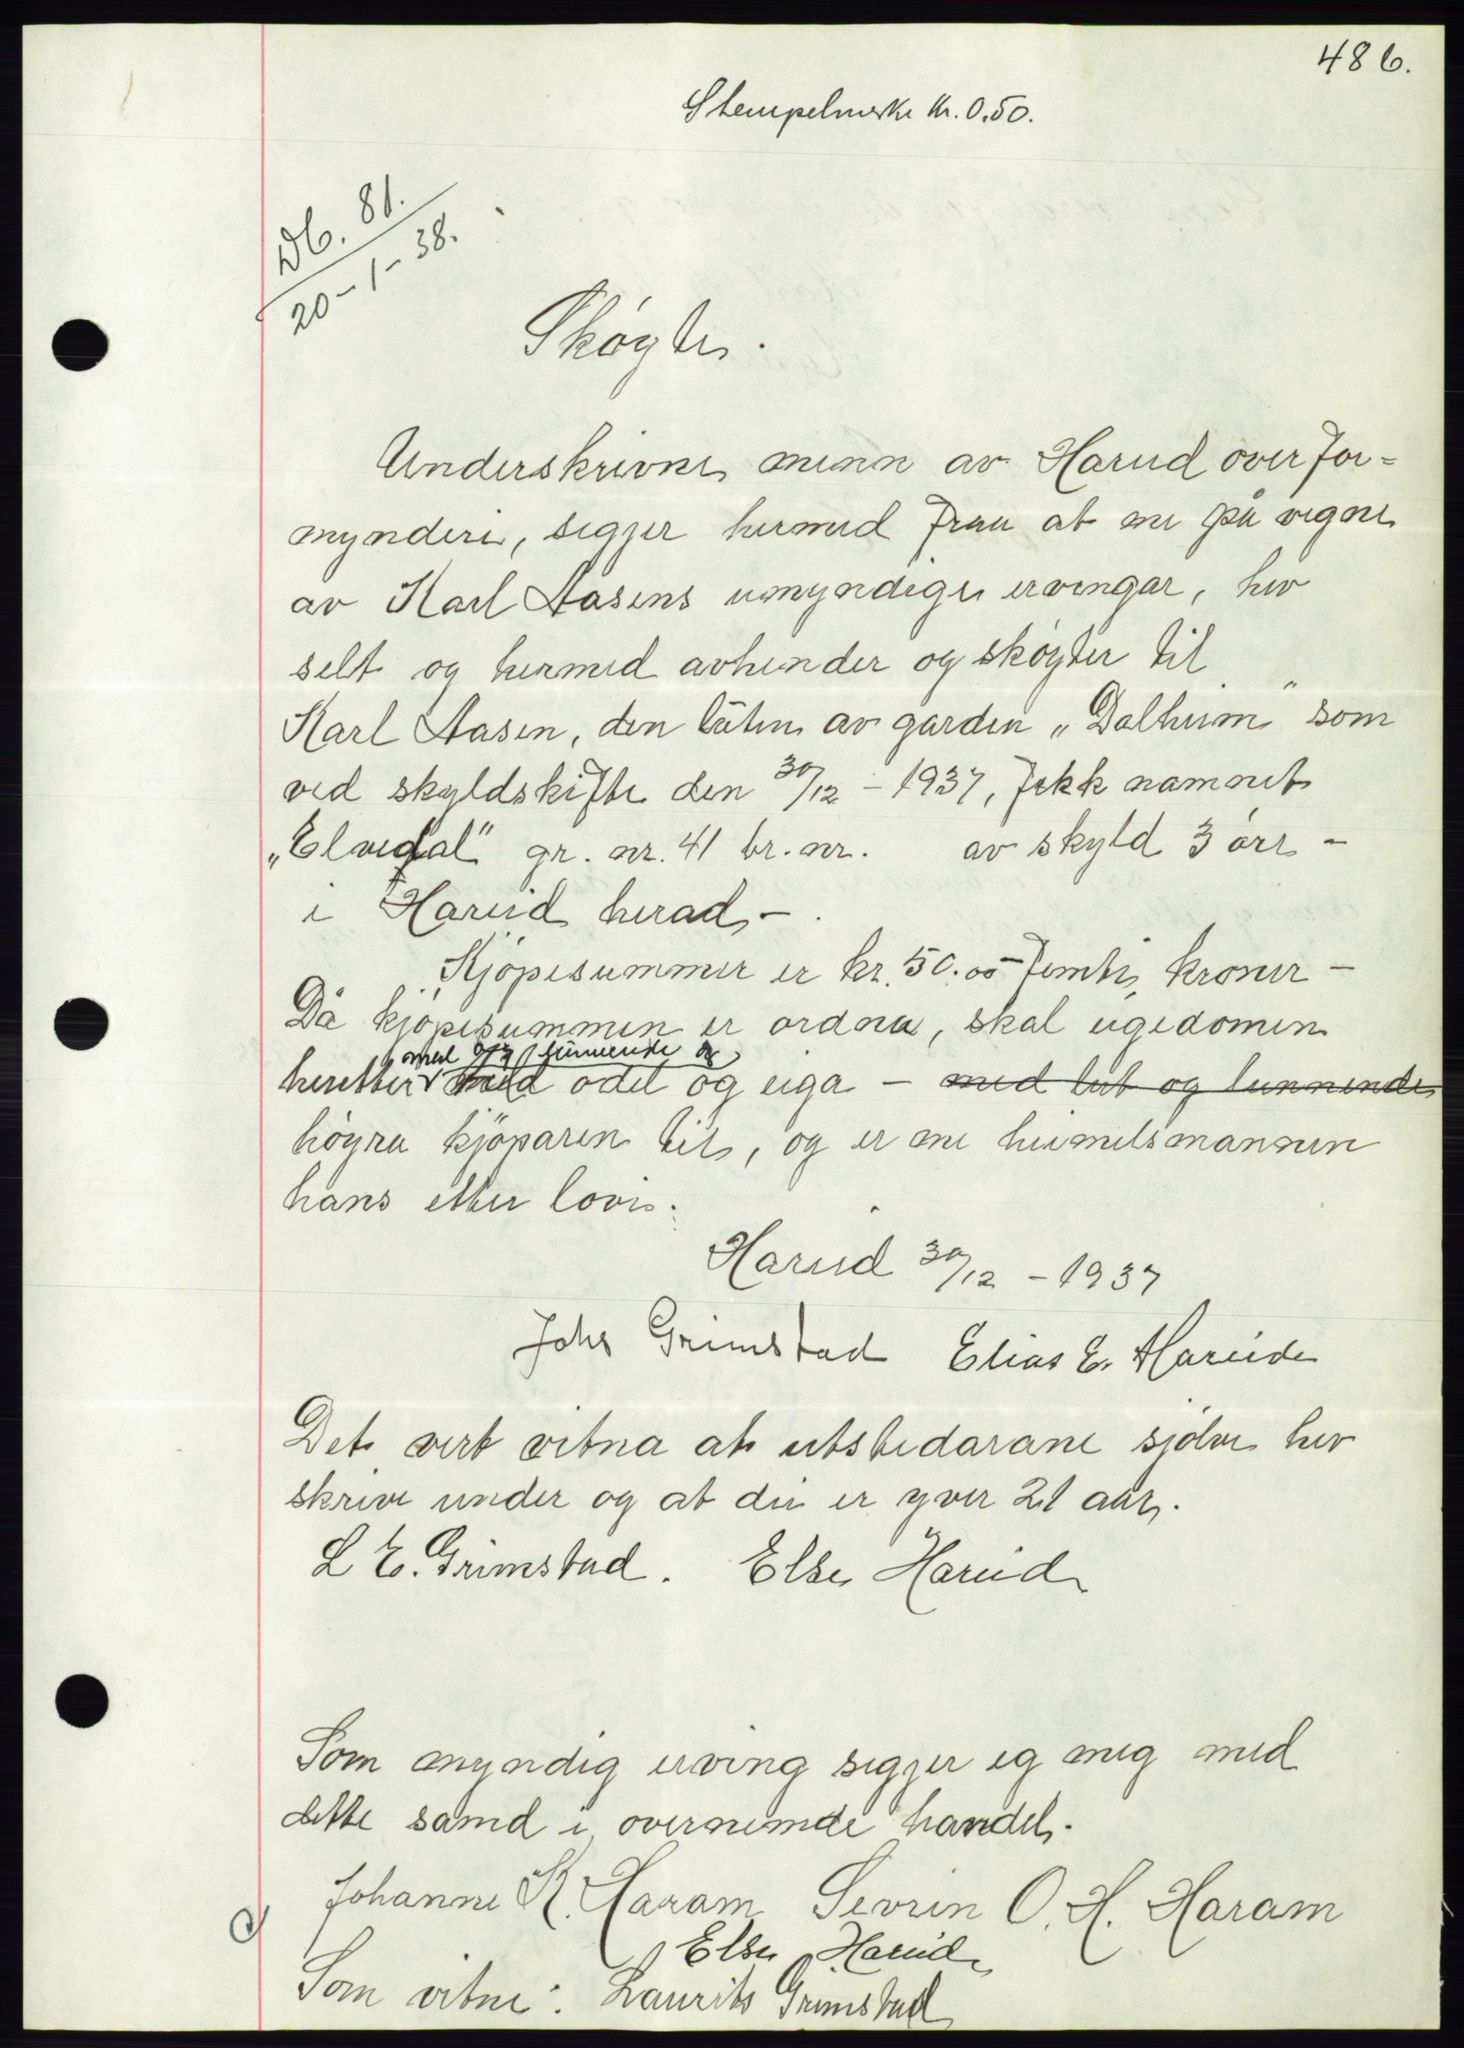 486.
Stempelmerke kr. 0.50.
Db. 81.
20-1-38.
Skøyte.
Underskrivne menn av Hareid overfor=
mynderi, segjer hermed fraa at me på vegne
av Karl Aasens umyndige ervingar, hev
selt og hermed avhender og skøyter til
Karl Aasen, den luten av garden „Dalheim" som
ved skyldskifte den 30/12 - 1937, fekk namnet
„Elvedal" gr. nr. 41 br. nr. av skyld 3 øre -
i Hareid herad -.
Kjøpesummer er kr. 50.00 - femti kroner -
Då kjøpesummen er ordna, skal eigedomen
med og lunnende og
heretter med odel og eiga - med lut og lunnende
høyra kjøparen til, og er me heimelsmannen
hans etter lovi.
Hareid 30/12 - 1937
Johs Grimstad Elias E. Hareide
Det vert vitna at utstedarane sjølve hev
skrive under og at dei er yver 21 aar.
L E. Grimstad. Else Hareid
Som myndig erving segjer eg meg med
dette samd i overnemde handel.
Johanne K. Haram Sevrin O. H. Haram
Else Hareid
Som vitne: Laurits Grimstad